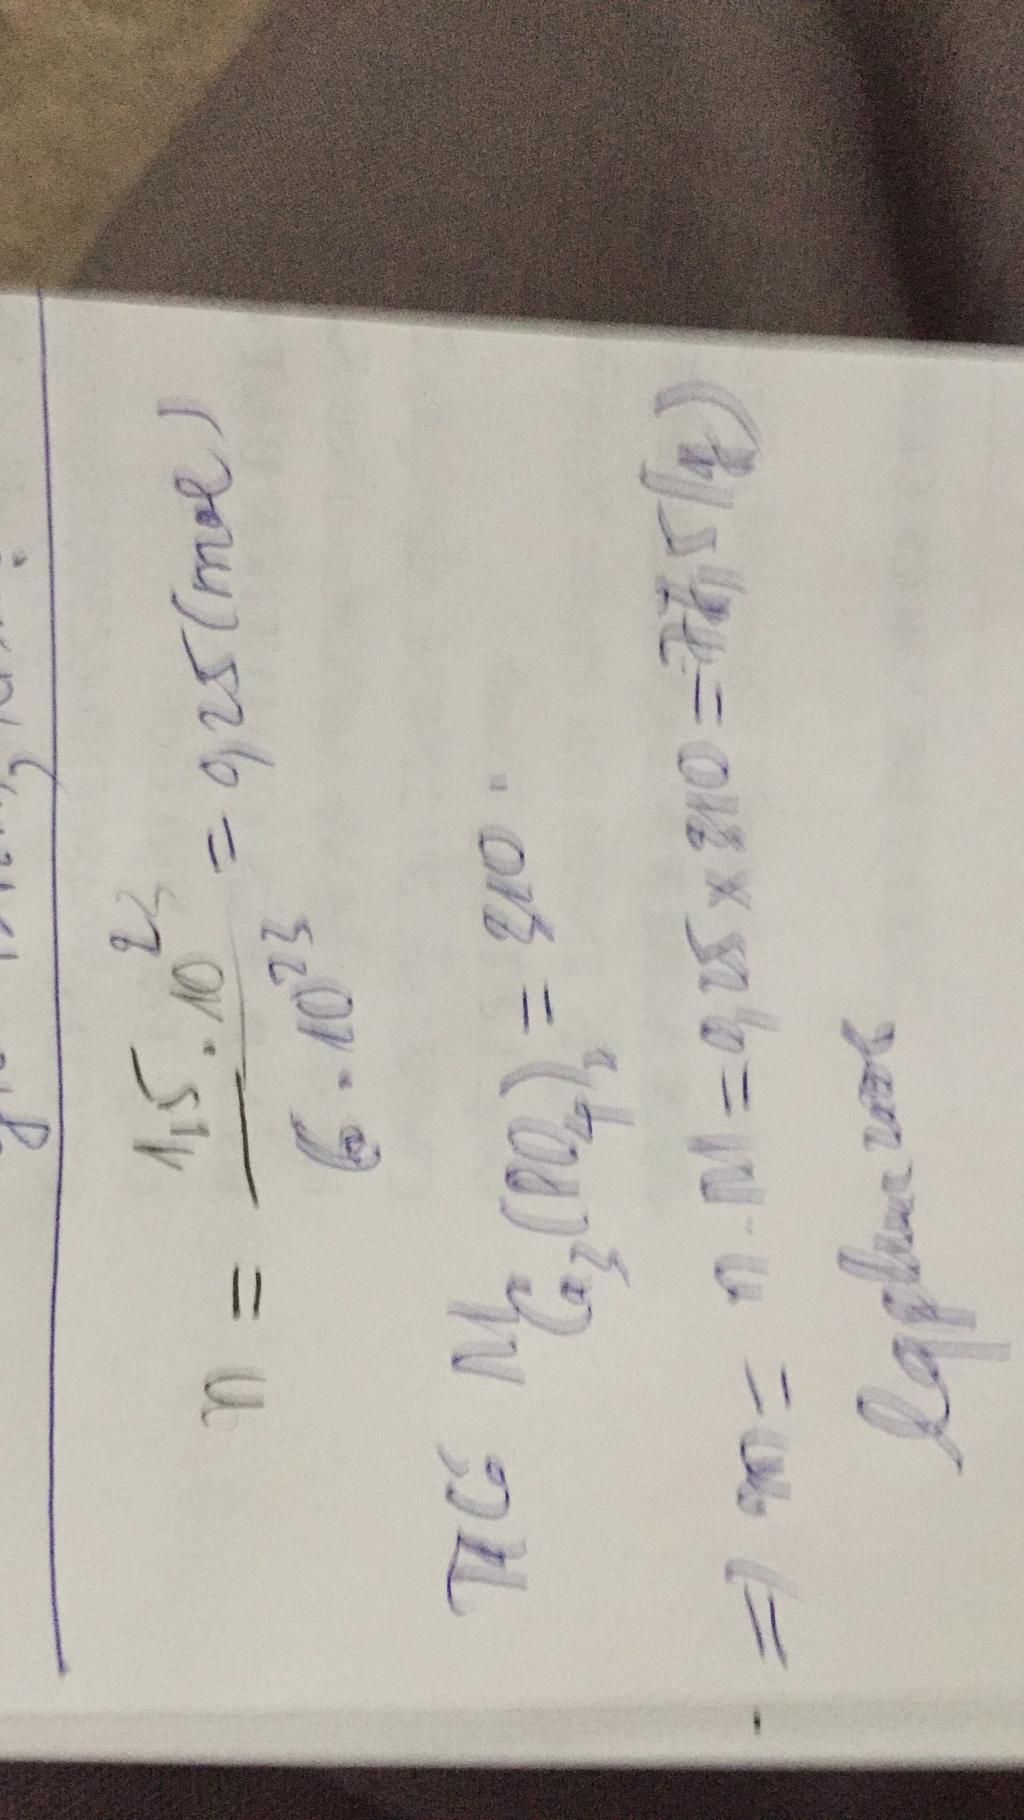 n = 1,5 . 10^23 / 6 . 10^23 = 0,25 (mol)
Ta có M Ca3(PO4)2 = 310 .
=> m = n . M = 0,25 x 310 = 77,5 (g)